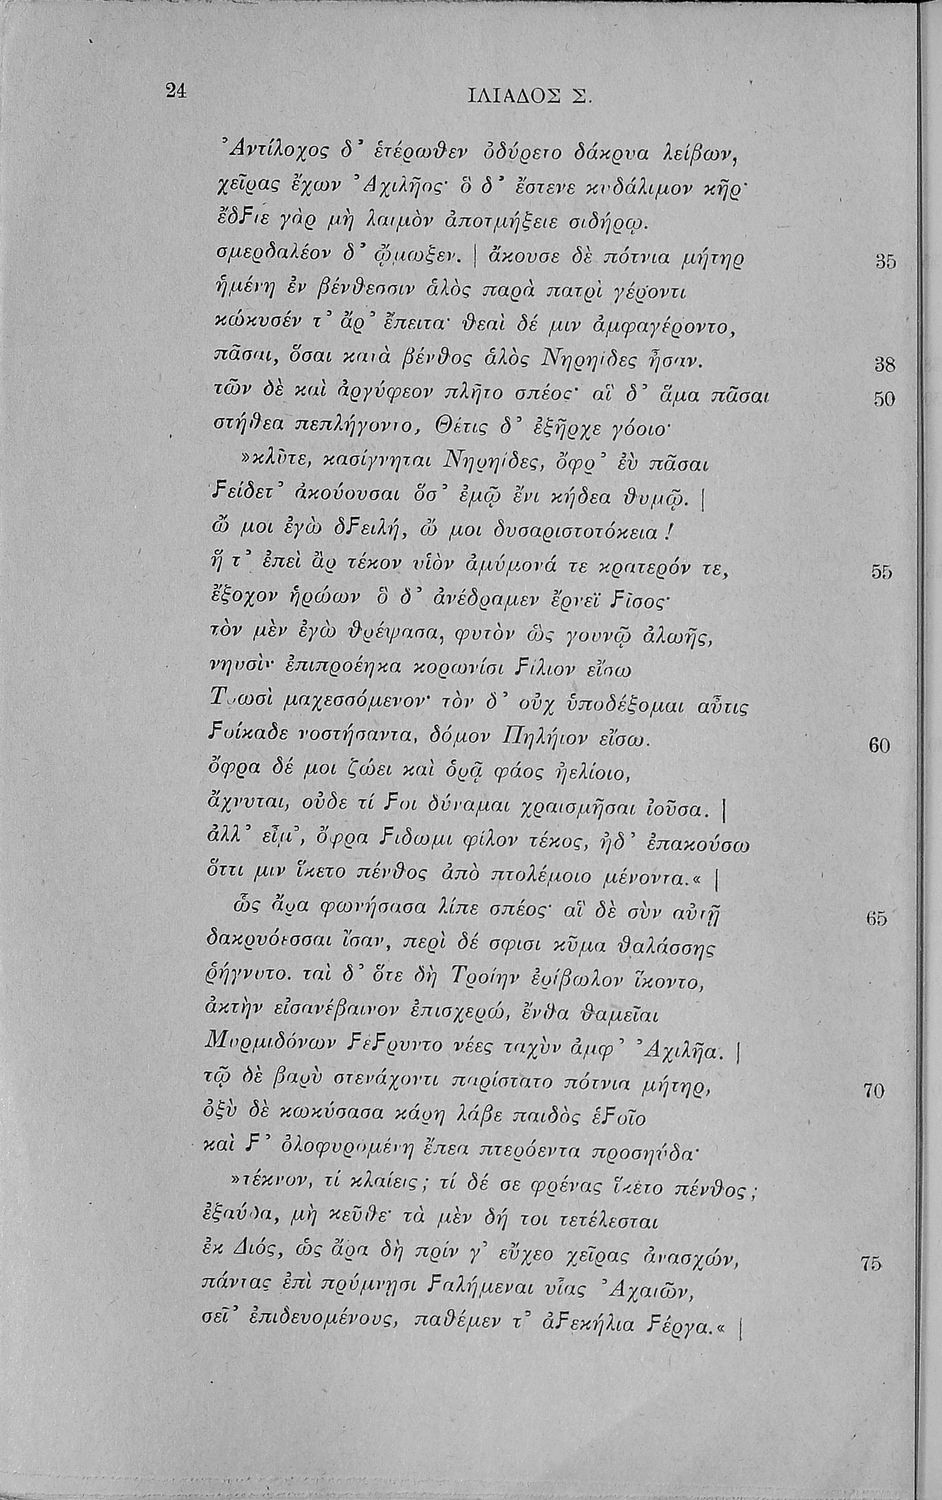 24
ΙΛΙΑΔΟΣ Σ.
Ἀντίλοχος δ’ ἑτέρωθεν ὀδύρετο δάκρυα λείβων,
χεῖρας ἔχων Ἀχιλῆος· ὃ δ’ ἔστενε κυδάλιμον κῆρ·
ἔδϜιε γὰρ μὴ λαιμὸν ἀποτμήξειε σιδήρῳ.
σμερδαλέον δ’ ᾤμωξεν. | ἄκουσε δὲ πότνια μήτηρ 35
ἡμένη ἐν βένθεσσιν ἁλὸς παρὰ πατρὶ γέροντι
κώκυσέν τ’ ἄρ’ ἔπειτα· θεαὶ δέ μιν ἀμφαγέροντο,
πᾶσαι, ὅσαι κατὰ βένθος ἁλὸς Νηρηίδες ἦσαν. 38
τῶν δὲ καὶ ἀργύφεον πλῆτο σπέος· αἳ δ’ ἅμα πᾶσαι 50
στήθεα πεπλήγοντο, Θέτις δ’ ἐξῆρχε γόοιο·
»κλῦτε, κασίγνηται Νηρηίδες, ὄφρ’ ἐὺ πᾶσαι
Ϝείδετ’ ἀκούουσαι ὅσ’ ἐμῷ ἔνι κήδεα θυμῷ. |
ὤ μοι ἐγὼ δϜειλή, ὤ μοι δυσαριστοτόκεια!
ἥ τ’ ἐπεὶ ἂρ τέκον υἱὸν ἀμύμονά τε κρατερόν τε, 55
ἔξοχον ἡρώων ὃ δ’ ἀνέδραμεν ἔρνεϊ Ϝῖσος·
τὸν μὲν ἐγὼ θρέψασα, φυτὸν ὣς γουνῷ ἀλωῆς,
νηυσὶν ἐπιπροέηκα κορωνίσι Ϝίλιον εἴσω
Τρωσὶ μαχεσσόμενον· τὸν δ’ οὐχ ὑποδέξομαι αὖτις
Ϝοίκαδε νοστήσαντα, δόμον Πηλήιον εἴσω. 60
ὄφρα δέ μοι ζώει καὶ ὁρᾷ φάος ἠελίοιο,
ἄχνυται, οὐδε τί Ϝοι δύναμαι χραισμῆσαι ἰοῦσα. |
ἀλλ’ εἶμ’, ὄφρα Ϝιδωμι φίλον τέκος, ἠδ’ ἐπακούσω
ὅττι μιν ἵκετο πένθος ἀπὸ πτολέμοιο μένοντα.« |
ὣς ἄρα φωνήσασα λίπε σπέος· αἳ δὲ σὺν αὐτῇ 65
δακρυόεσσαι ἴσαν, περὶ δέ σφισι κῦμα θαλάσσης
ῥήγνυτο. ταὶ δ’ ὅτε δὴ Τροίην ἐρίβωλον ἵκοντο,
ἀκτὴν εἰσανέβαινον ἐπισχερώ, ἔνθα θαμεῖαι
Μυρμιδόνων ϜέϜρυντο νέες ταχὺν ἀμφ’ Ἀχιλῆα. |
τῷ δὲ βαρὺ στενάχοντι παρίστατο πότνια μήτηρ, 70
ὀξὺ δὲ κωκύσασα κάρη λάβε παιδὸς ἑϜοῖο
καὶ Ϝ’ ὀλοφυρομένη ἔπεα πτερόεντα προσηύδα·
»τέκνον, τί κλαίεις; τί δέ σε φρένας ἵκετο πένθος;
ἐξαύδα, μὴ κεῦθε· τὰ μὲν δή τοι τετέλεσται
ἐκ Διός, ὡς ἄρα δὴ πρίν γ’ εὔχεο χεῖρας ἀνασχών, 75
πάντας ἐπὶ πρύμνῃσι Ϝαλήμεναι υἷας Ἀχαιῶν,
σεῖ’ ἐπιδευομένους, παθέμεν τ’ ἀϜεκήλια Ϝέργα.« |